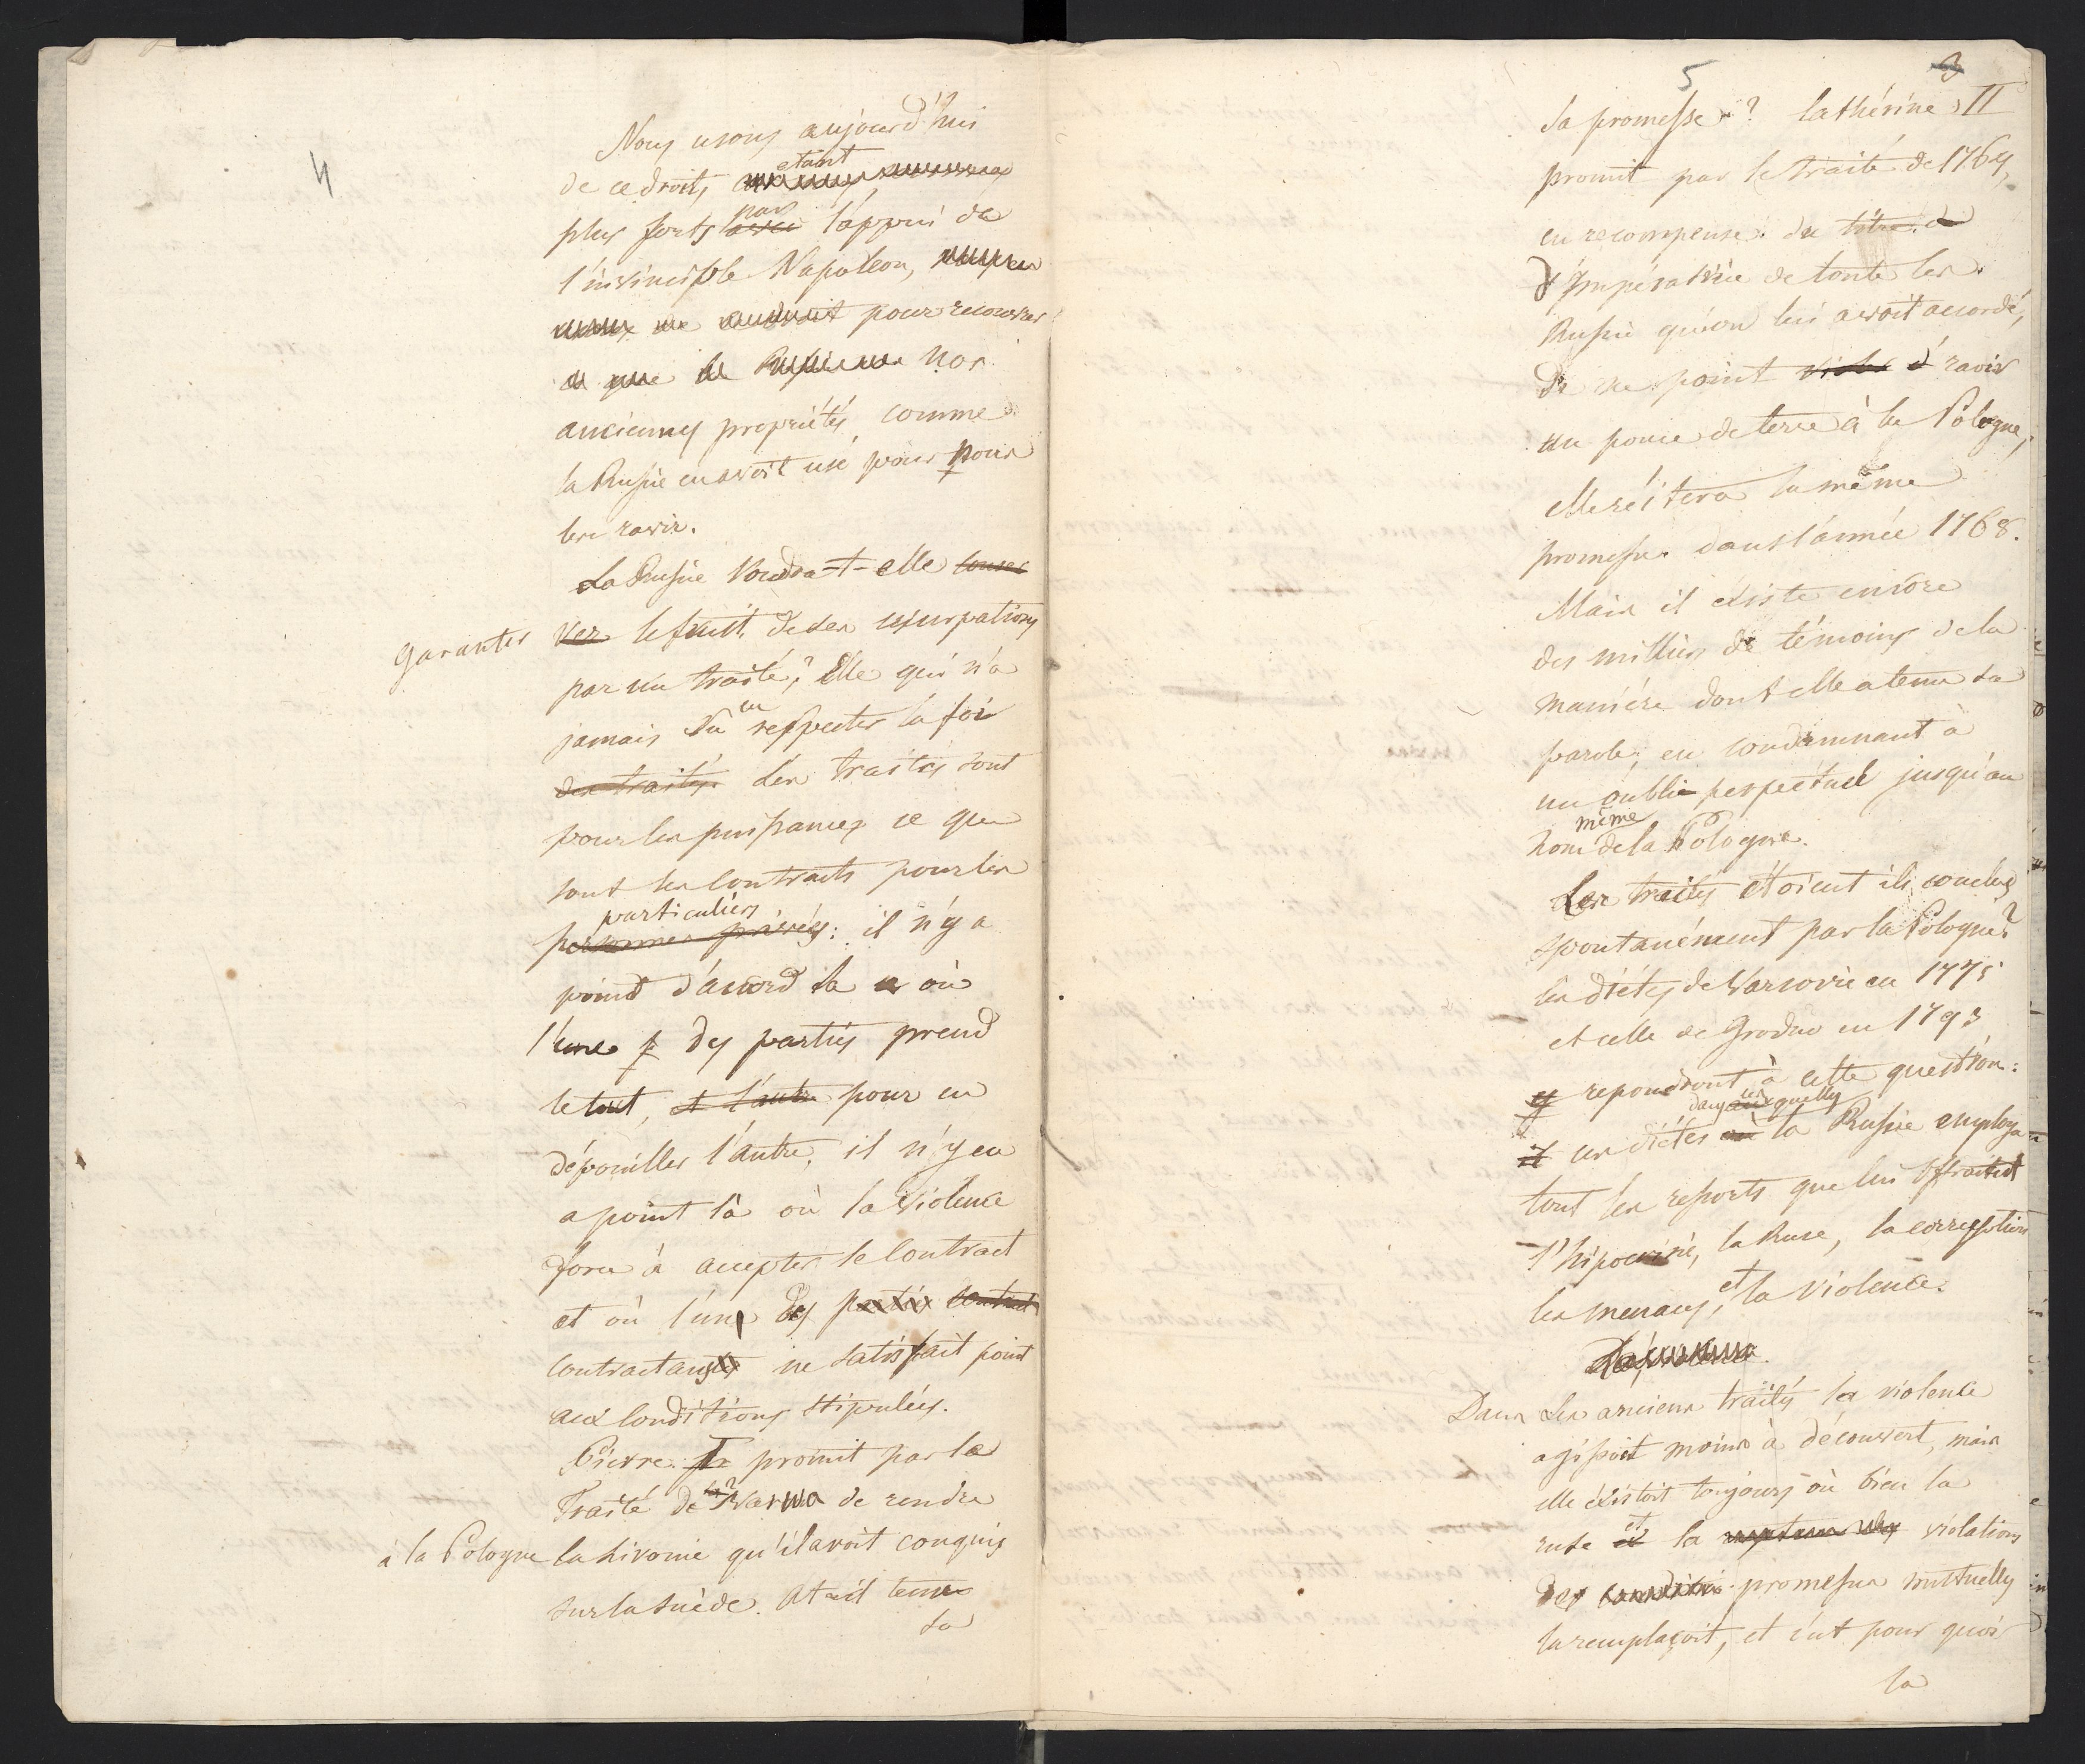 4
Nous usons aujourd'hui
de ce droits etant
plus forts par l'appui de
l'invincible Napoleon,
pour recouvrer
nos
anciennes propriétés, comme
la Russie en avoit usé pour nous
les ravir.
La Russie voudra-t-elle
garantir le fruit de ses usurpations
par un traité? Elle qui n'a
jamais su en respecter la foi
des traités Les traités sont
pour les puissances ce que
sont les contracts pour les
particuliers
personnes privées: il n'y a
point d'accord la où
l'une des parties prend
le tout, et l'autre pour en
dépouiller l'autre, il n'y en
a point là où la violence
force à accepter le contract
et où l'un des
contractans ne satisfait point
aux conditions stipulées.
Pierre Ir promit par le
Traité de Warwa de rendre
à la Pologne la Livonie qu'il avoit conquis
sur la Suède. At-il tenu
sa
5
3
sa promesse? Cathérine II
promit par le traité de 1764,
en recompense du titre
d'Impératrice de toute les
Russie qu'on lui avoit accordé,
de ne point ravir
un pouce de terre à la Pologne;
elle réitera la même
promesse dans l'année 1768.
Mais il existe encore
des milliers de témoins de la
manière dont elle a tenu sa
parole; en condamnant à
un oubli perpétuel jusqu'au
même
nom de la Pologne.
Les traités étoient ils conclus
spontanément par la Pologne?
les diétes de Varsovie en 1775
et celle de Grodno en 1793
repondront à cette question:
dans les quelles
les diétes où la Russie employa
tout les ressorts que lui offroient
l'hipocrisie, la Ruse, la corruption
les menaces, et la violence.
Dans les anciens traités la violence
agissoit moins à découvert, mais
elle existoit toujours où bien la
ruse et la violations
des promesses mutuelles
la remplaçoit, et c'est pour quoi
la